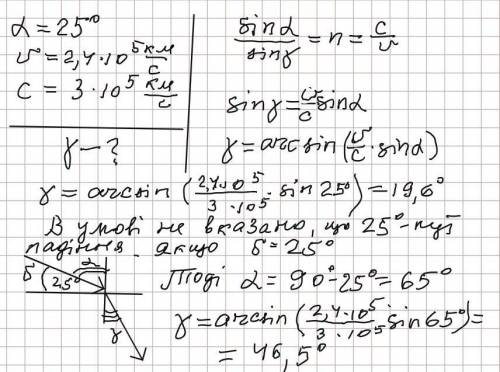 α = 25°
υ = 2,4·10⁵ км/с
c = 3·10⁵ км/с
γ - ?
sinα/sinγ = n = c/υ
sinγ = υ/c sinα
γ = arcsin(υ/c · sinα)
γ = arcsin(2,4·10⁵/3·10⁵ · sin 25°) = 19,6°
В умові не вказано, що 25° - кут
падіння. якщо δ = 25°
Тоді α = 90° - 25° = 65°
γ = arcsin(2,4·10⁵/3·10⁵ sin 65°) =
= 46,5°
δ
25°
α
γ